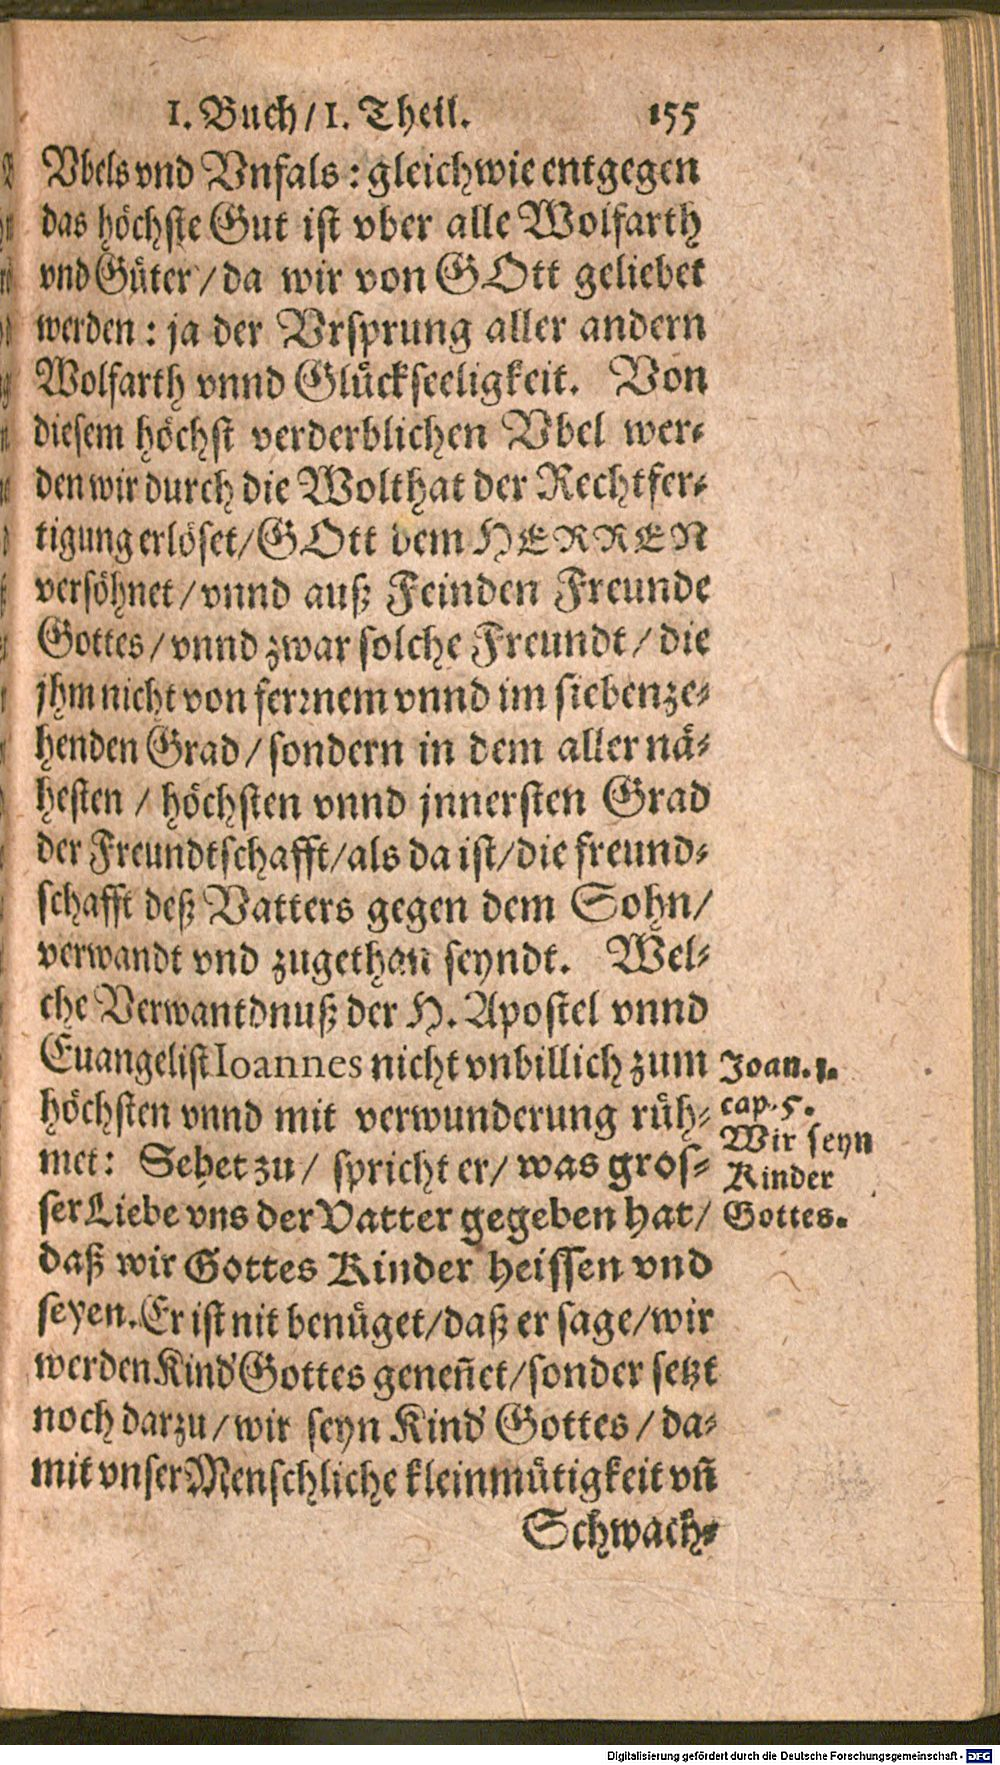 1. Buch/1. Theil. 155
Vbels vnd Vnfals: gleichwie entgegen
das höchste Gut ist vber alle Wolfarth
vnd Güter/da wir von GOtt geliebet
werden: ja der Vrsprung aller andern
Wolfarth vnnd Glückseeligkeit. Von
diesem höchst verderblichen Vbel wer-
den wir durch die Wolthat der Rechtfer-
tigung erlöset/GOtt dem HERREN
versöhnet/vnnd auß Feinden Freunde
Gottes/vnnd zwar solche Freundt/die
jhm nicht von ferrnem vnnd im siebenze-
henden Grad/sondern in dem aller nä-
hesten / höchsten vnnd jnnersten Grad
der Freundtschafft/als da ist/die freund-
schafft deß Vatters gegen dem Sohn/
verwandt vnd zugethan seyndt. Wel-
che Verwantdnuß der H. Apostel vnnd
Euangelist Ioannes nicht vnbillich zum
höchsten vnnd mit verwunderung rüh-
met: Sehet zu/ spricht er/ was gros-
ser Liebe vns der Vatter gegeben hat/
daß wir Gottes Kinder heissen vnd
seyen. Er ist nit benüget/daß er sage/wir
werden Kind Gottes geneñet/sonder setzt
noch darzu/wir seyn Kind Gottes/da-
mit vnser Menschliche kleinmütigkeit vñ
Schwach-
Joan. 1.
cap. 5.
Wir seyn
Kinder
Gottes.
Digitalisierung gefördert durch die Deutsche Forschungsgemeinschaft - DFG